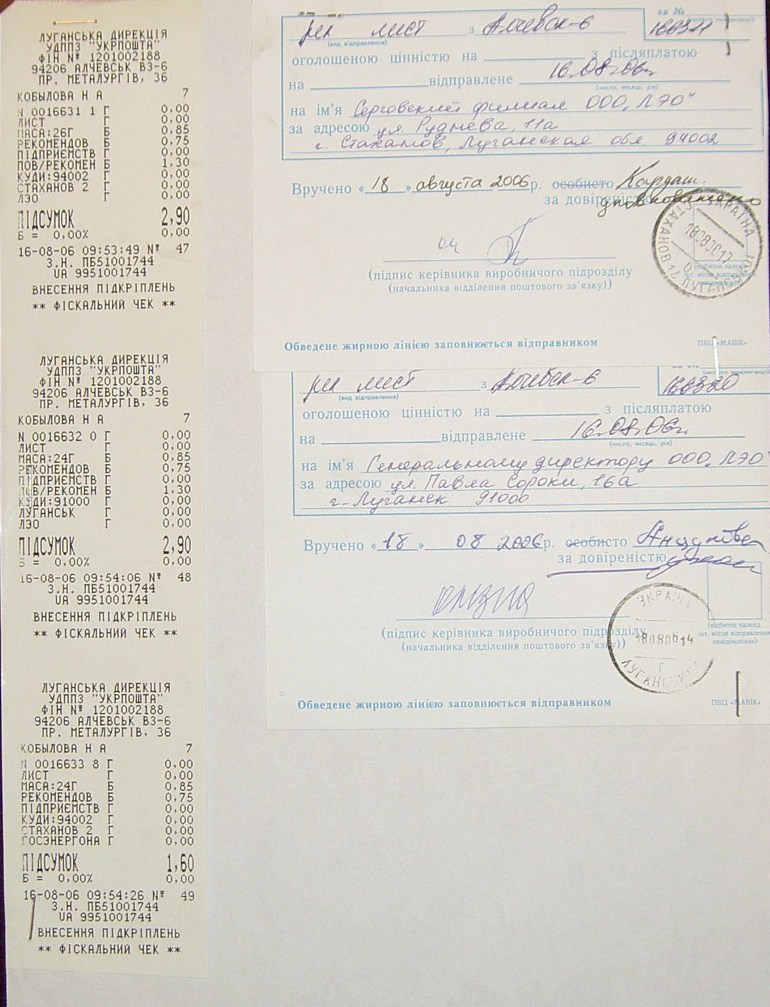 ЛУГАНСЬКА ДИРЕКЦІЯ
УДППЗ "УКРПОШТА"
ФІН № 1201002188
94206 АЛЧЕВСЬК ВЗ-6
ПР. МЕТАЛУРГІВ, 36
КОБЫЛОВА Н А 7
N 0016631 1 Г 0.00
ЛИСТ Г 0.00
МАСА:26Г Б 0.85
РЕКОМЕНДОВ Б 0.75
ПІДПРИЄМСТВ Г 0.00
ПОВ/РЕКОМЕН Б 1.30
КУДИ:94002 Г 0.00
СТАХАНОВ 2 Г 0.00
ЛЭО Г 0.00
ПІДСУМОК 2,90
Б = 0.00% 0.00
16-08-06 09:53:49 № 47
З.Н. ПБ51001744
UA 9951001744
ВНЕСЕННЯ ПІДКРІПЛЕНЬ
** ФІСКАЛЬНИЙ ЧЕК **
ЛУГАНСЬКА ДИРЕКЦІЯ
УДППЗ "УКРПОШТА"
ФІН № 1201002188
94206 АЛЧЕВСЬК ВЗ-6
ПР. МЕТАЛУРГІВ, 36
КОБЫЛОВА Н А 7
N 0016632 0 Г 0.00
ЛИСТ Г 0.00
МАСА:24Г Б 0.85
РЕКОМЕНДОВ Б 0.75
ПІДПРИЄМСТВ Г 0.00
ПОВ/РЕКОМЕН Б 1.30
КУДИ:91000 Г 0.00
ЛУГАНСЬК Г 0.00
ЛЭО Г 0.00
ПІДСУМОК 2,90
Б = 0.00% 0.00
16-08-06 09:54:06 № 48
З.Н. ПБ51001744
UA 9951001744
ВНЕСЕННЯ ПІДКРІПЛЕНЬ
** ФІСКАЛЬНИЙ ЧЕК **
ЛУГАНСЬКА ДИРЕКЦІЯ
УДППЗ "УКРПОШТА"
ФІН № 1201002188
94206 АЛЧЕВСЬК ВЗ-6
ПР. МЕТАЛУРГІВ, 36
КОБЫЛОВА Н А 7
N 0016633 8 Г 0.00
ЛИСТ Г 0.00
МАСА:24Г Б 0.85
РЕКОМЕНДОВ Б 0.75
ПІДПРИЄМСТВ Г 0.00
КУДИ:94002 Г 0.00
СТАХАНОВ 2 Г 0.00
ГОСЭНЕРГОНА Г 0.00
ПІДСУМОК 1,60
Б = 0.00% 0.00
16-08-06 09:54:26 № 49
З.Н. ПБ51001744
UA 9951001744
ВНЕСЕННЯ ПІДКРІПЛЕНЬ
** ФІСКАЛЬНИЙ ЧЕК **
за №
рек лист з Алчевск-6
(вид відправлення)
оголошеною цінністю на з післяплатою
на відправлене 16.08.06г.
(число, місяць, рік)
на ім'я Серговский филиал ООО „ЛЭО"
за адресою ул. Руднева, 11а
г. Стаханов, Луганская обл 94002
Вручено «18» августа 2006р. особисто
за довіреністю
(підпис керівника виробничого підрозділу
(начальника відділення поштового зв'язку))
УКРАЇНА
СТАХАНОВ 12 ЛУГАНСЬКОЇ
Обведене жирною лінією заповнюється відправником
ПВЦ «МАВІК»
рек лист з Алчевск-6
(вид відправлення)
оголошеною цінністю на з післяплатою
на відправлене 16.08.06г.
(число, місяць, рік)
на ім'я Генеральному директору ООО „ЛЭО"
за адресою ул. Павла Сороки, 16а
г. Луганск 91000
Вручено «18» 08 2006р. особисто
за довіреністю
(підпис керівника виробничого підрозділу
(начальника відділення поштового зв'язку))
УКРАЇНА
Обведене жирною лінією заповнюється відправником
ПВЦ «МАВІК»